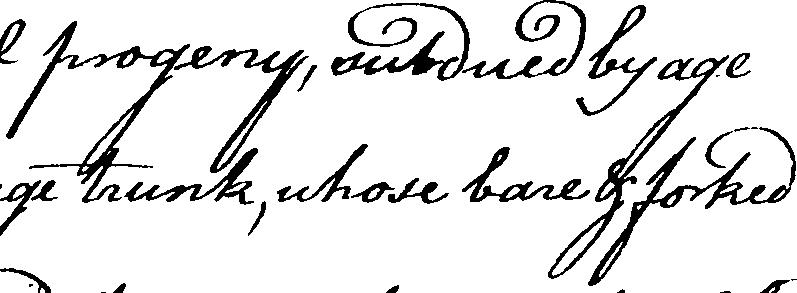 progeny, subdued by age
trunk, whose bare & forked